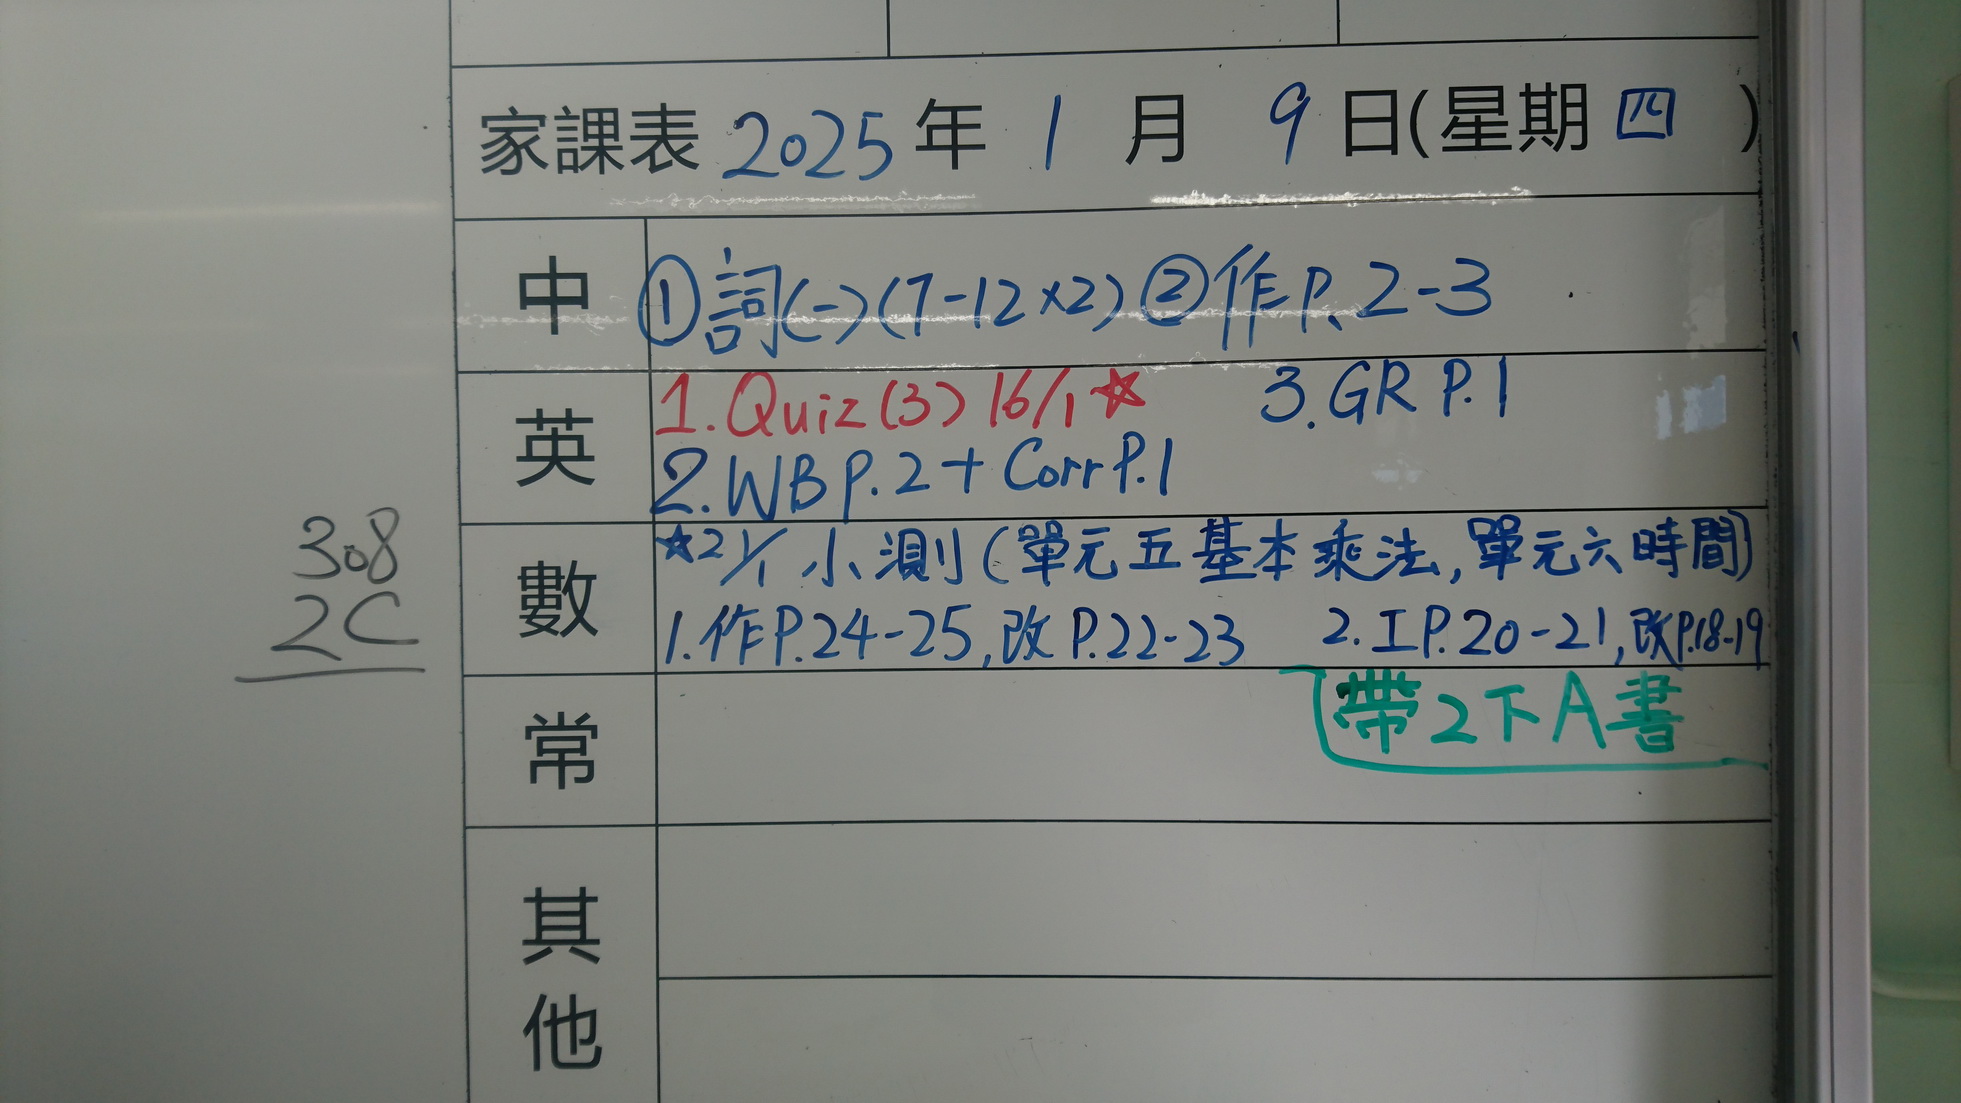 家課表 2025 年 1 月 9 日(星期 四 )
中 ①詞(一)(7-12×2) ②作P.2-3
英 1.Quiz(3) 16/1 ☆ 3.GR P.1
2.WB P.2 + Corr P.1
數 ★21/1 小測(單元五基本乘法,單元六時間)
1.作P.24-25,改P.22-23 2.工P.20-21,改P.18-19
常 帶2下A書
其他
308
2C